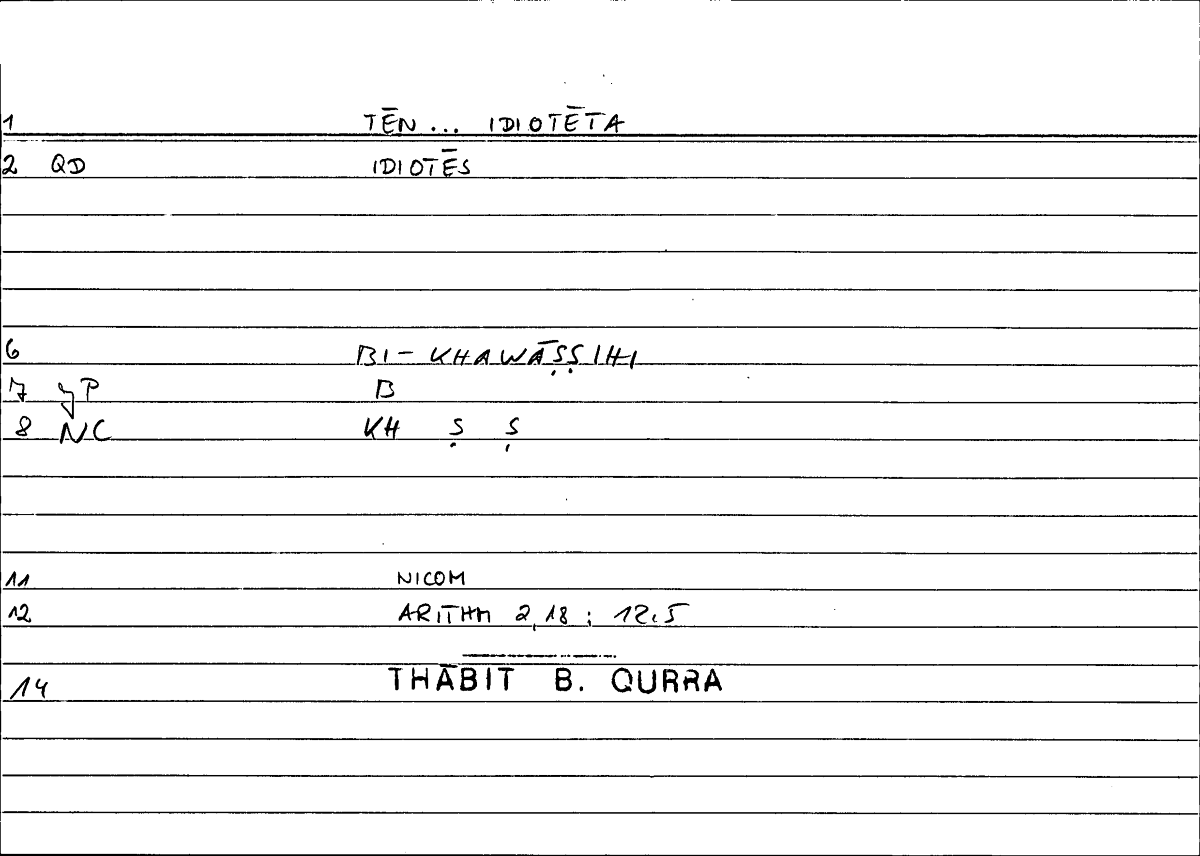 1 TĒN ... IDIOTĒTA
2 QD IDIOTĒS
6 BI-KHAWĀṢṢIHI
7 P B
8 NC KH Ṣ Ṣ
11 NICOM
12 ARITHM 2,18 ; 12.5
14 THĀBIT B. QURRA